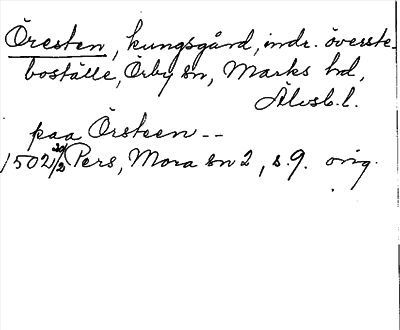 Öresten, kungsgård, indr. överste-
boställe, Örby sn, Marks hd,
Älvsb. l.
paa Örsteen --
1502 30/3 Pers, Mora sn 2, s. 9. orig.